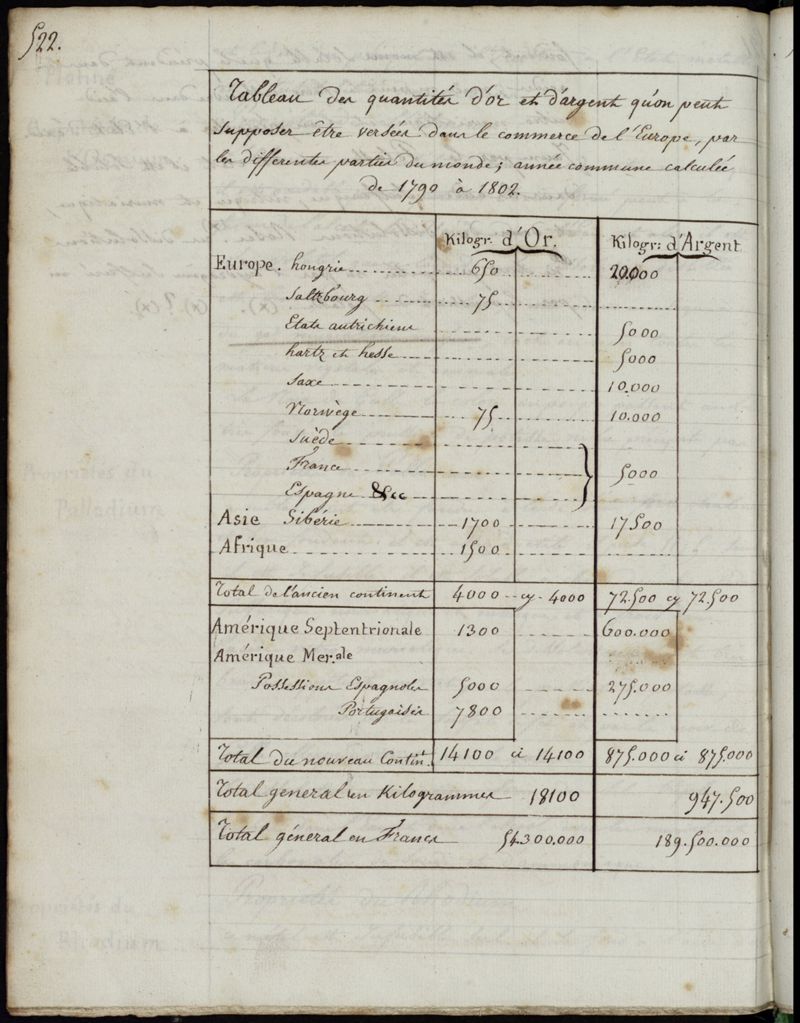 522.
Tableau des quantités d'or et d'argent qu'on peut
supposer être versées dans le commerce de l'Europe, par
les differentes parties du monde; année commune calculée
de 1790 à 1802.
Kilogr. d'Or. Kilogr: d'Argent
Europe. hongrie 650 20.000
Saltzbourg 75
Etats autrichiens 5000
hartz et hesse 5000
Saxe 10.000
Norwège 75 10.000
Suède
France 5000
Espagne &cc
Asie Sibérie 1700 17500
Afrique 1500
Total de l'ancien continent 4000 cy 4000 72500 cy 72.500
Amérique Septentrionale 1300 600.000
Amérique Mer.ale
Possessions Espagnoles 5000 275.000
Portugaises 7800
Total du nouveau Contint. 14100 ci 14100 875.000 ci 875.000
Total general en Kilogrammes 18100 947.500
Total général en Francs 54.300.000 189.500.000
Propriétés du
Palladium
Propriétés du Rhodium
Propriétés du
Rhodium